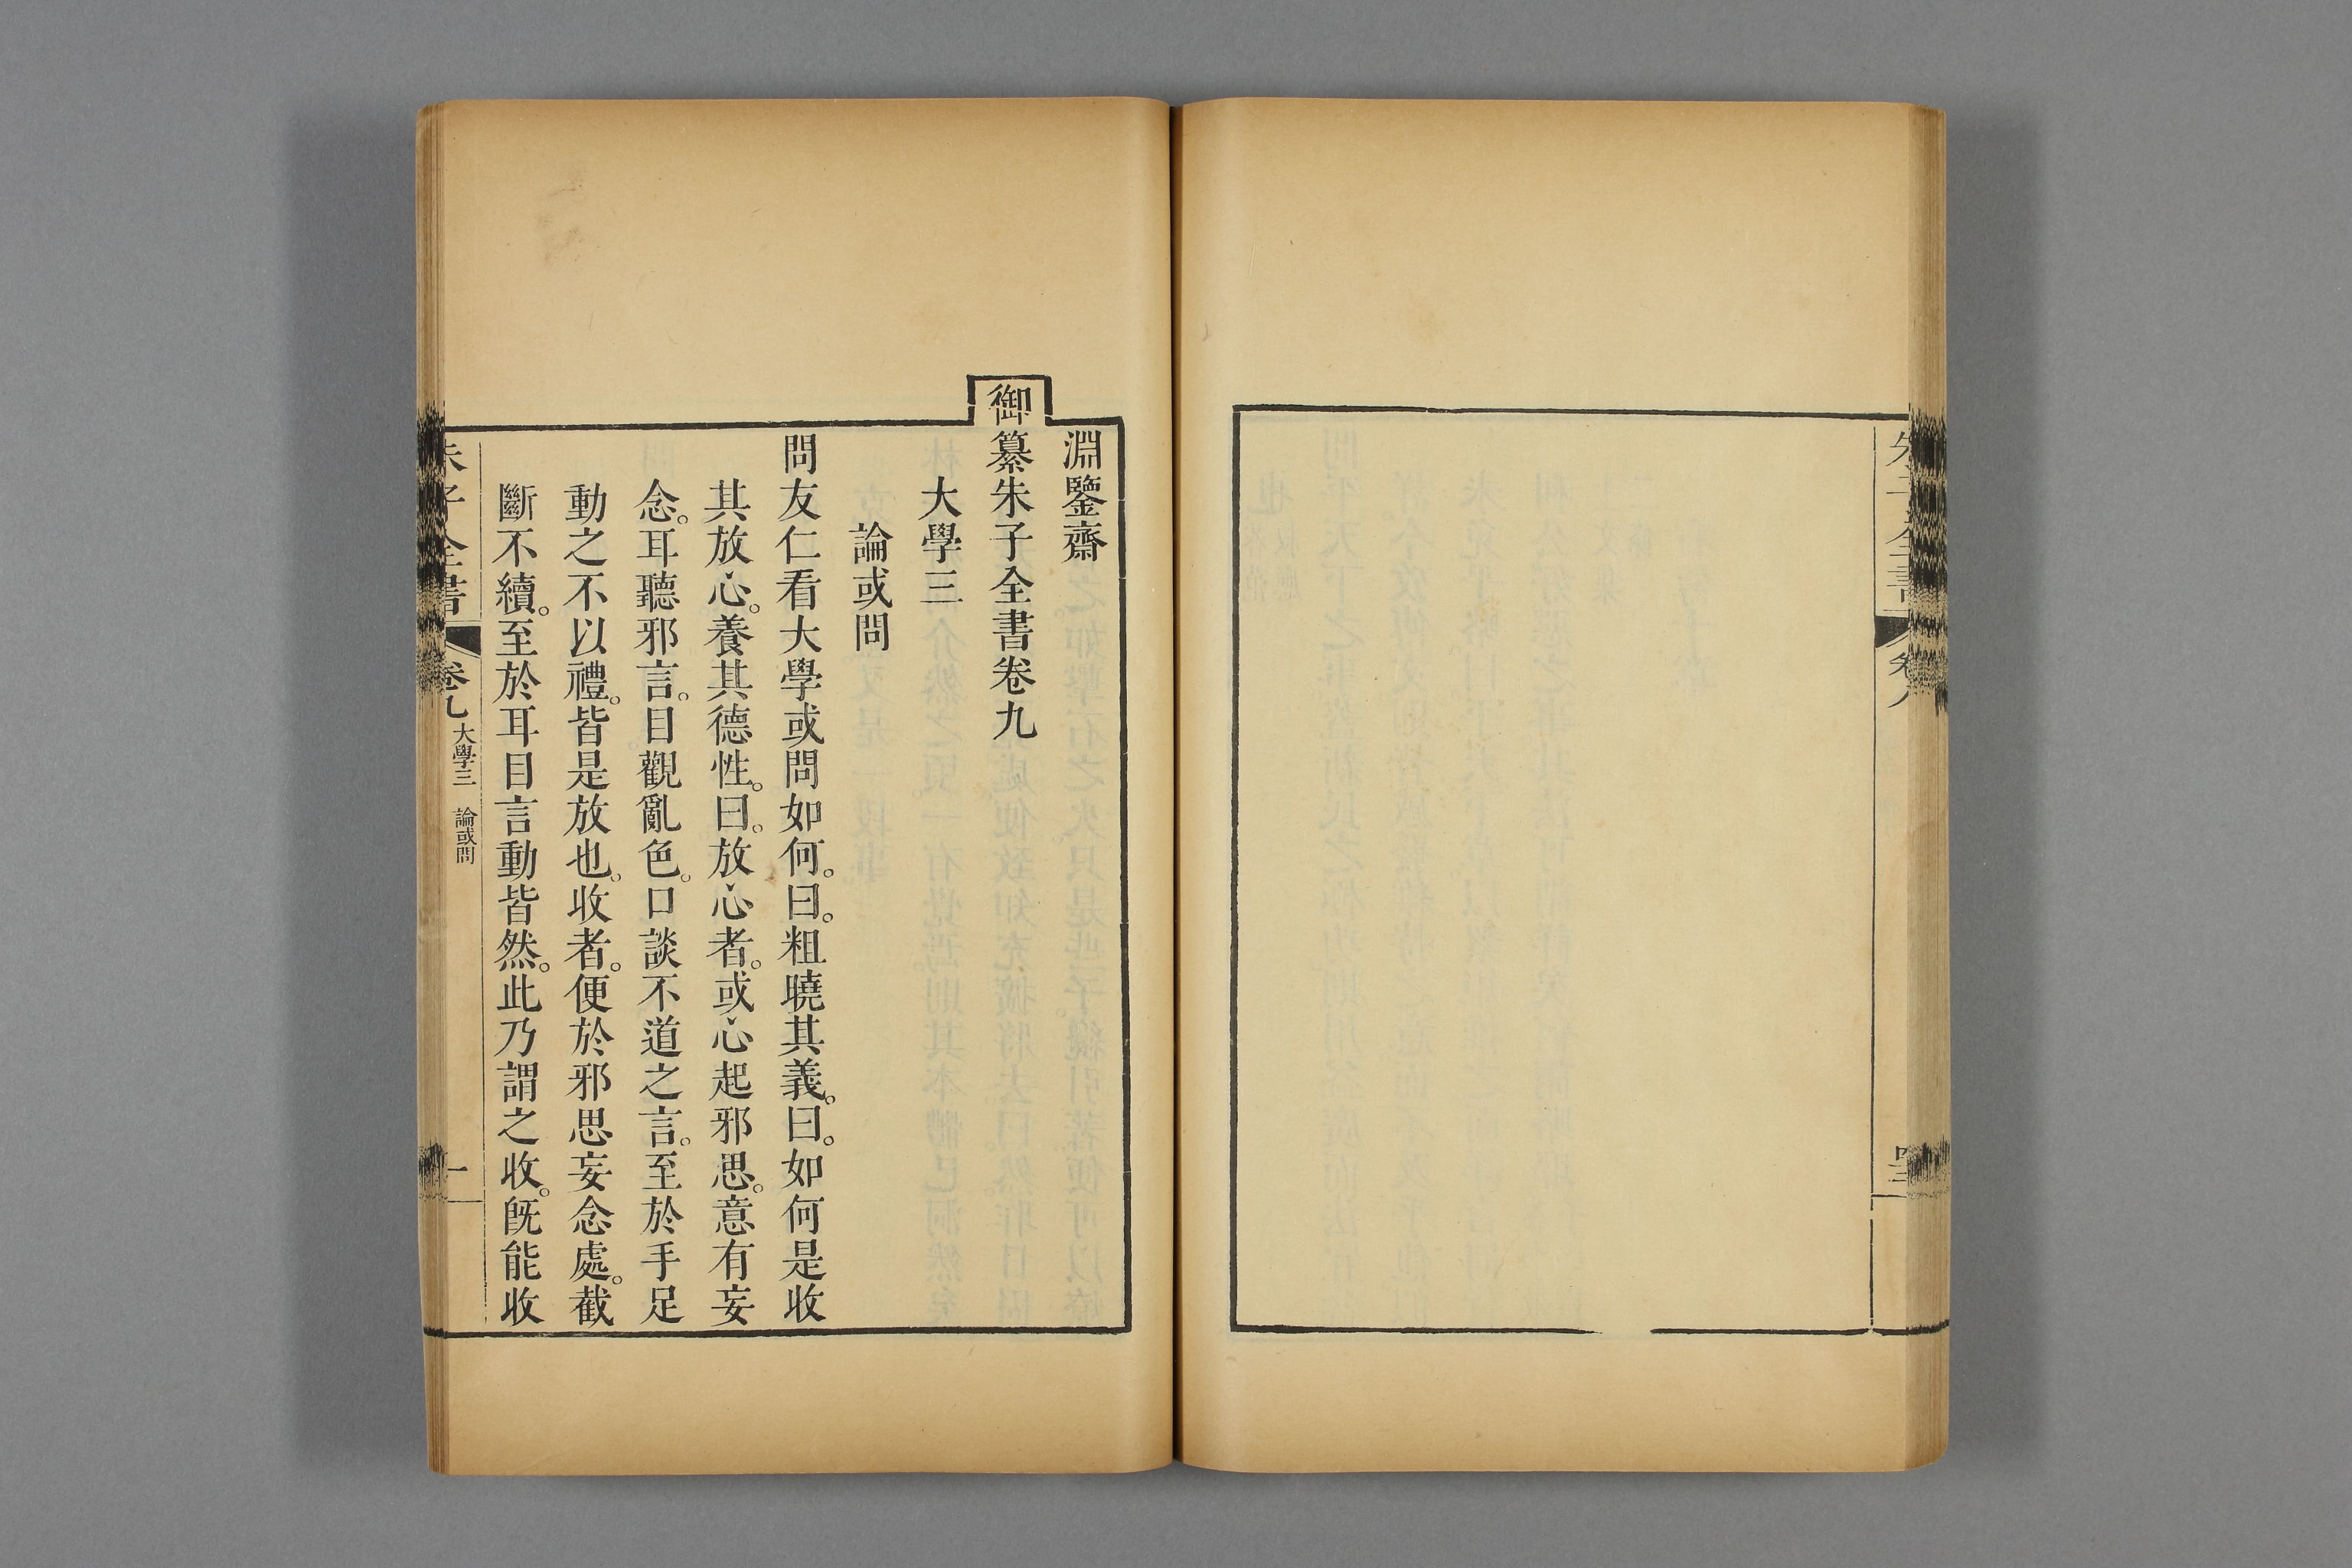 朱子全書
卷八
淵鑒齋
御纂朱子全書卷九
大學三
論或問
問友仁看大學或問如何。曰。粗曉其義。曰。如何是收
其放心。養其德性。曰。放心者。或心起邪思。意有妄
念。耳聽邪言。目觀亂色。口談不道之言。至於手足
動之不以禮。皆是放也。收者。便於邪思妄念處。截
斷不續。至於耳目言動皆然。此乃謂之收。旣能收
朱子全書
卷九
大學三
論或問
一